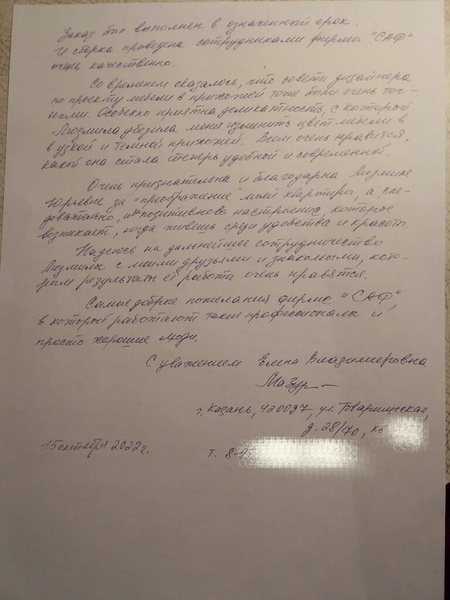 Заказ был выполнен в означенный срок.
И сборка проведена сотрудниками фирмы "САФ"
очень качественно.
Со временем оказалось, что советы дизайнера
по проекту мебели в прихожей тоже были очень точ-
ными. Особенно приятна деликатность, с которой
Людмила убедила меня изменить цвет мебели в
в узкой и темной прихожей. Всем очень нравится,
какой она стала теперь удобной и современной.
Очень признательна и благодарна Людмиле
Юрьевне за "преображение" моей квартиры, а сле-
довательно, и позитивного настроения, которое
возникает, когда живешь среди удобства и красоты.
Надеюсь на дальнейшее сотрудничество
Людмилы с моими друзьями и знакомыми, кото-
рым результаты её работы очень нравятся.
Самые добрые пожелания фирме "САФ",
в которой работают такие профессионалы и
просто хорошие люди.
С уважением Елена Владимировна
Мазур
г. Казань, 420097, ул. Товарищеская,
д. 28/70, кв
15 октября 2022 г. т. 8-9